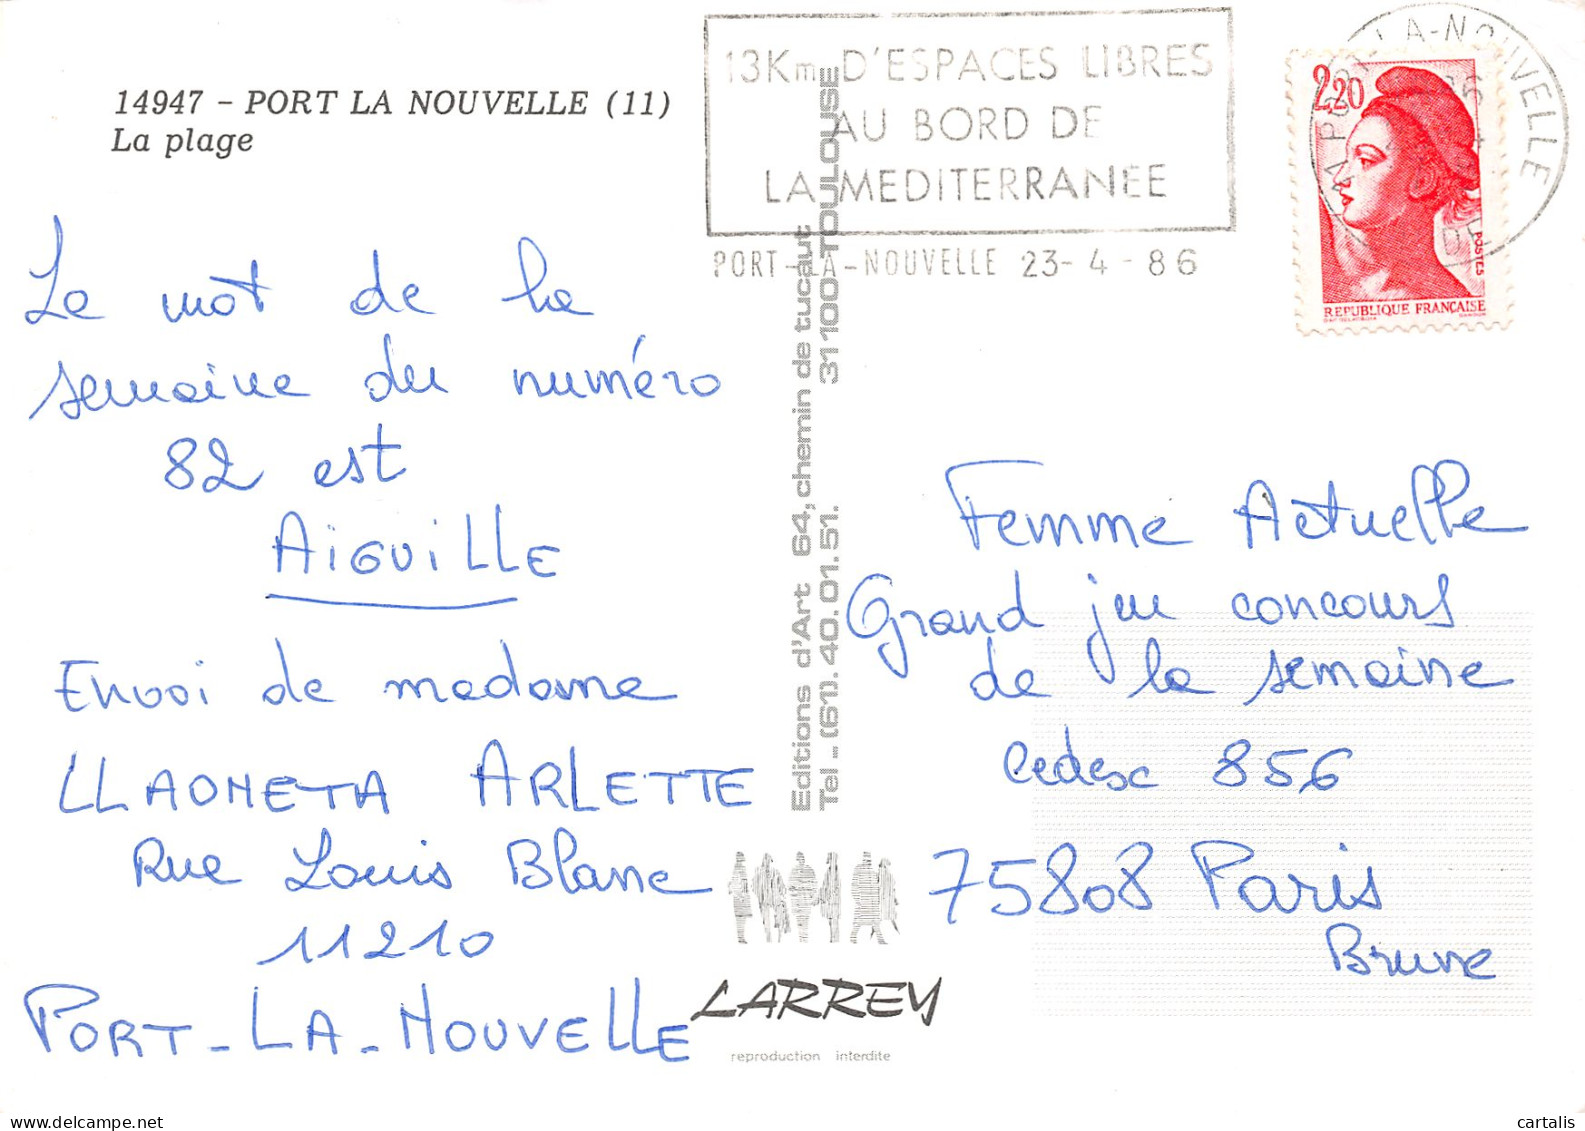 14947 - PORT LA NOUVELLE (11)
La plage
13Km D'ESPACES LIBRES
AU BORD DE
LA MEDITERRANEE
PORT-LA-NOUVELLE 23-4-86
2,20
POSTES
REPUBLIQUE FRANÇAISE
Le mot de la
semaine du numéro
82 est
AiGUiLLE
Envoi de madame
LLAONETA ARLETTE
Rue Louis Blanc
11210
PORT-LA-NOUVELLE
Editions d'Art 64, chemin de tucaut 31100 TOULOUSE
Tel - (61). 40.01.51.
LARREY
reproduction interdite
Femme Actuelle
Grand jeu concours
de la semaine
Cedex 856
75808 Paris
Brune
cartalis